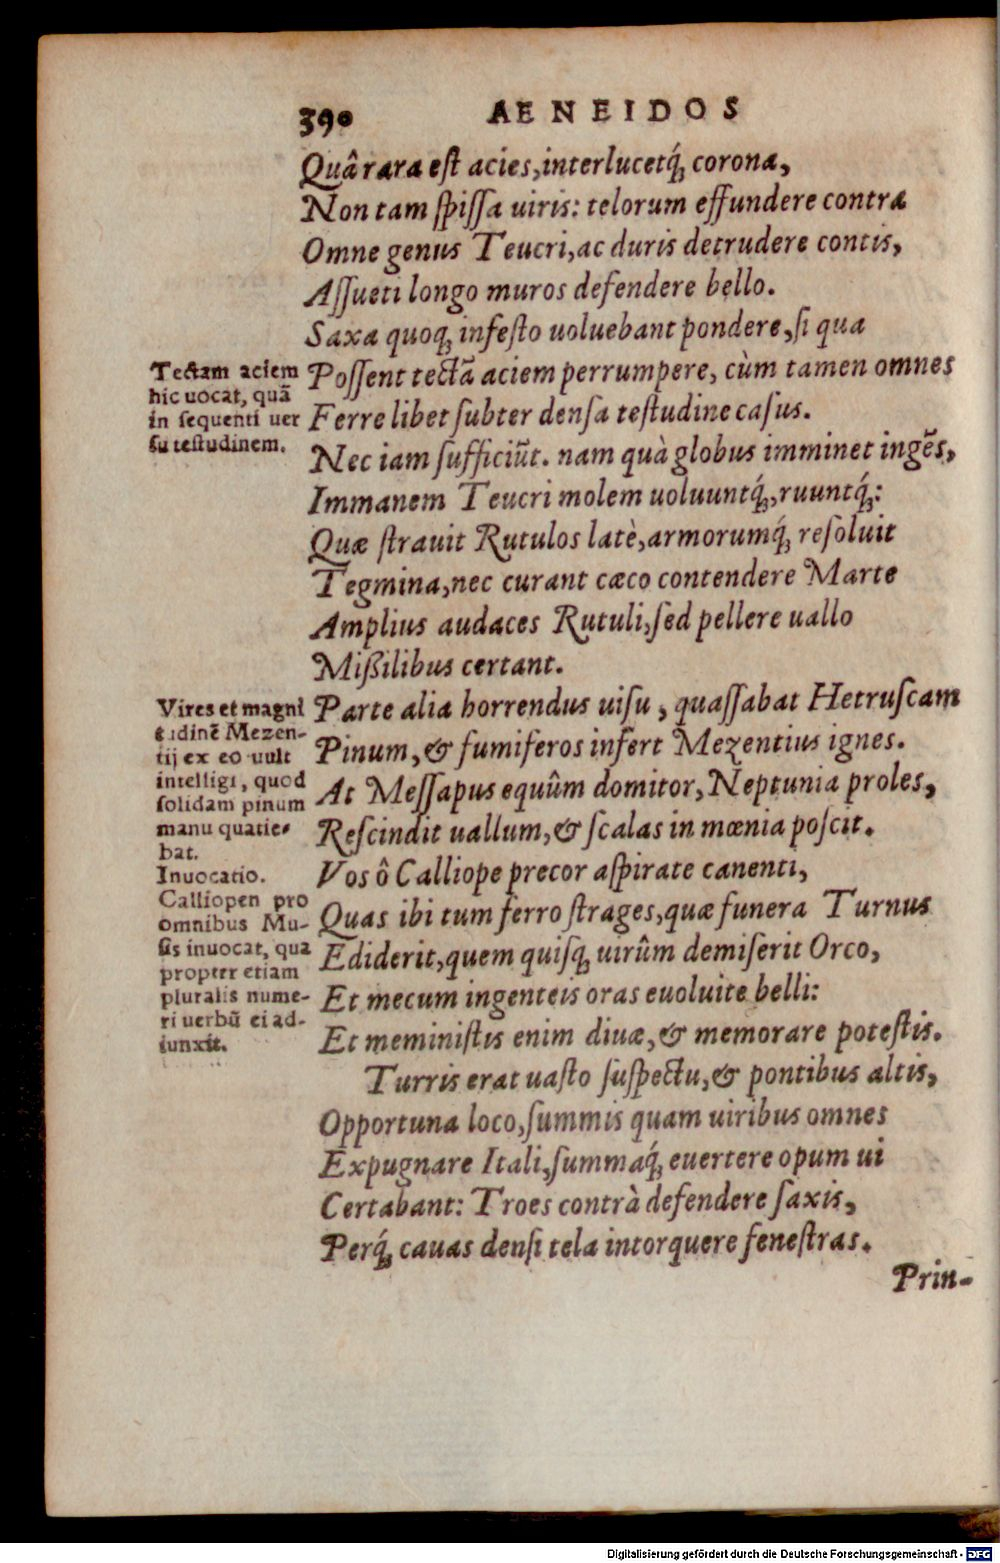 390 AENEIDOS
Quâ rara est acies, interlucetq́; corona,
Non tam spissa uiris: telorum effundere contra
Omne genus Teucri, ac duris detrudere contis,
Assueti longo muros defendere bello.
Saxa quoq; infesto uoluebant pondere, si qua
Possent tectã aciem perrumpere, cùm tamen omnes
Ferre libet subter densa testudine casus.
Nec iam sufficiũt. nam quà globus imminet ingẽs,
Immanem Teucri molem uoluuntq́;, ruuntq́;:
Quæ strauit Rutulos latè, armorumq́; resoluit
Tegmina, nec curant cæco contendere Marte
Amplius audaces Rutuli, sed pellere uallo
Mißilibus certant.
Parte alia horrendus uisu, quassabat Hetruscam
Pinum, & fumiferos infert Mezentius ignes.
At Messapus equûm domitor, Neptunia proles,
Rescindit uallum, & scalas in mœnia poscit.
Vos ô Calliope precor aspirate canenti,
Quas ibi tum ferro strages, quæ funera Turnus
Ediderit, quem quisq; uirûm demiserit Orco,
Et mecum ingenteis oras euoluite belli:
Et meministis enim diuæ, & memorare potestis.
Turris erat uasto suspectu, & pontibus altis,
Opportuna loco, summis quam uiribus omnes
Expugnare Itali, summaq́; euertere opum ui
Certabant: Troes contrà defendere saxis,
Perq́; cauas densi tela intorquere fenestras.
Prin-
Tectam aciem
hic uocat, quã
in sequenti uer
su testudinem.
Vires et magni
tudinẽ Mezen-
tij ex eo uult
intelligi, quod
solidam pinum
manu quatie-
bat.
Inuocatio.
Calliopen pro
omnibus Mu-
sis inuocat, qua
propter etiam
pluralis nume-
ri uerbũ ei ad-
iunxit.
Digitalisierung gefördert durch die Deutsche Forschungsgemeinschaft - DFG